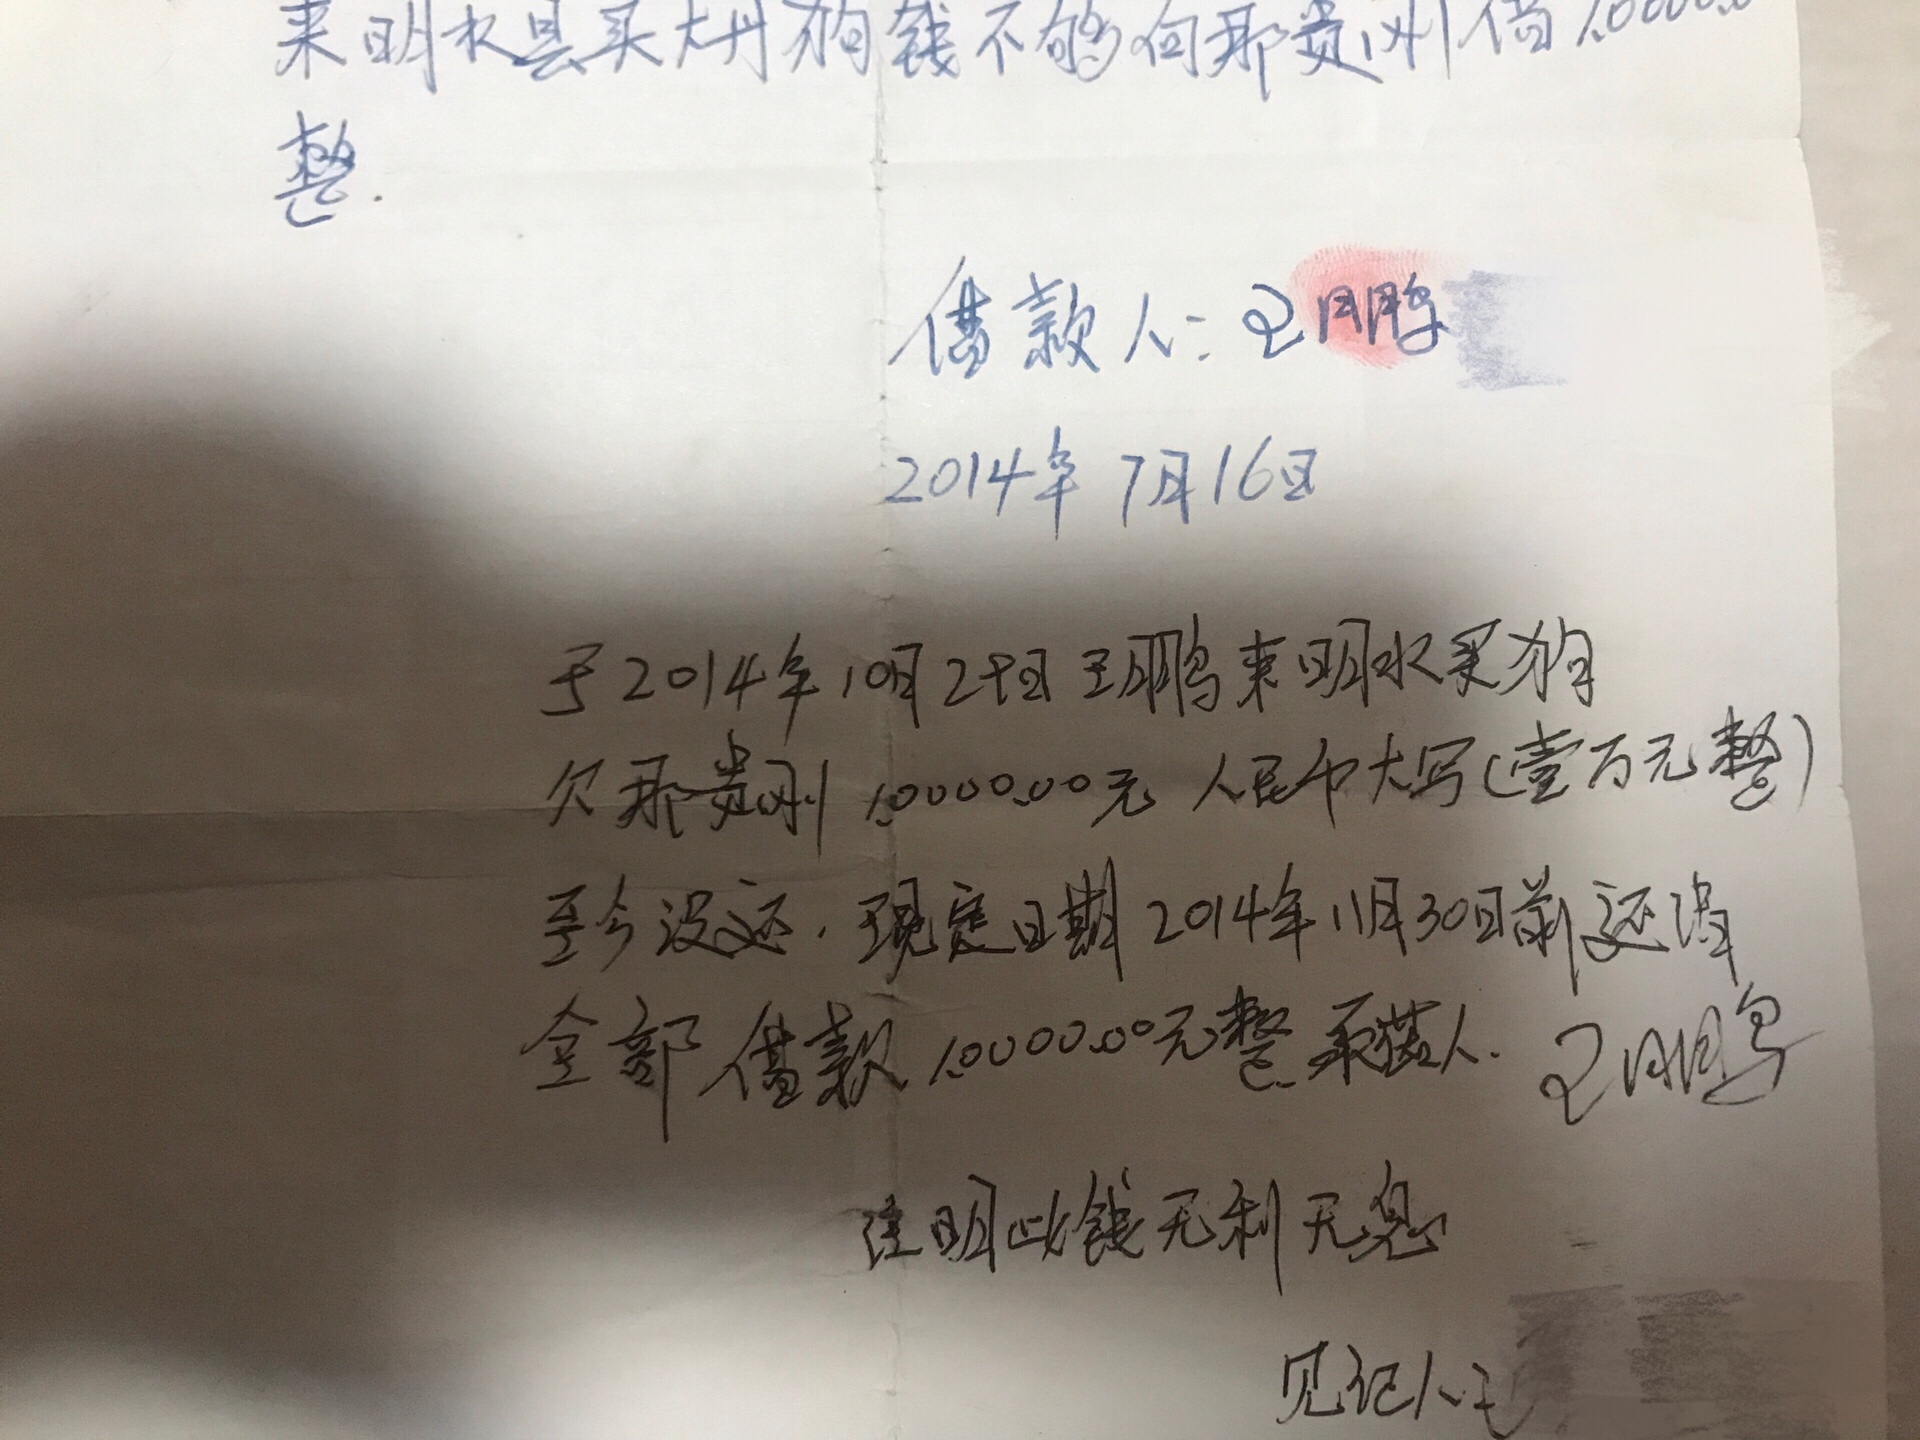 来明水县买大丹狗钱不够向那贵刚借10000.0
整.
借款人:王鹏
2014年7月16日
于2014年10月29日王鹏来明水买狗
欠那贵刚10000.00元 人民币大写(壹万元整)
至今没还.现定日期2014年11月30日前还清
全部借款10000.00元整 承诺人.王鹏
注明此钱无利无息
见记人: